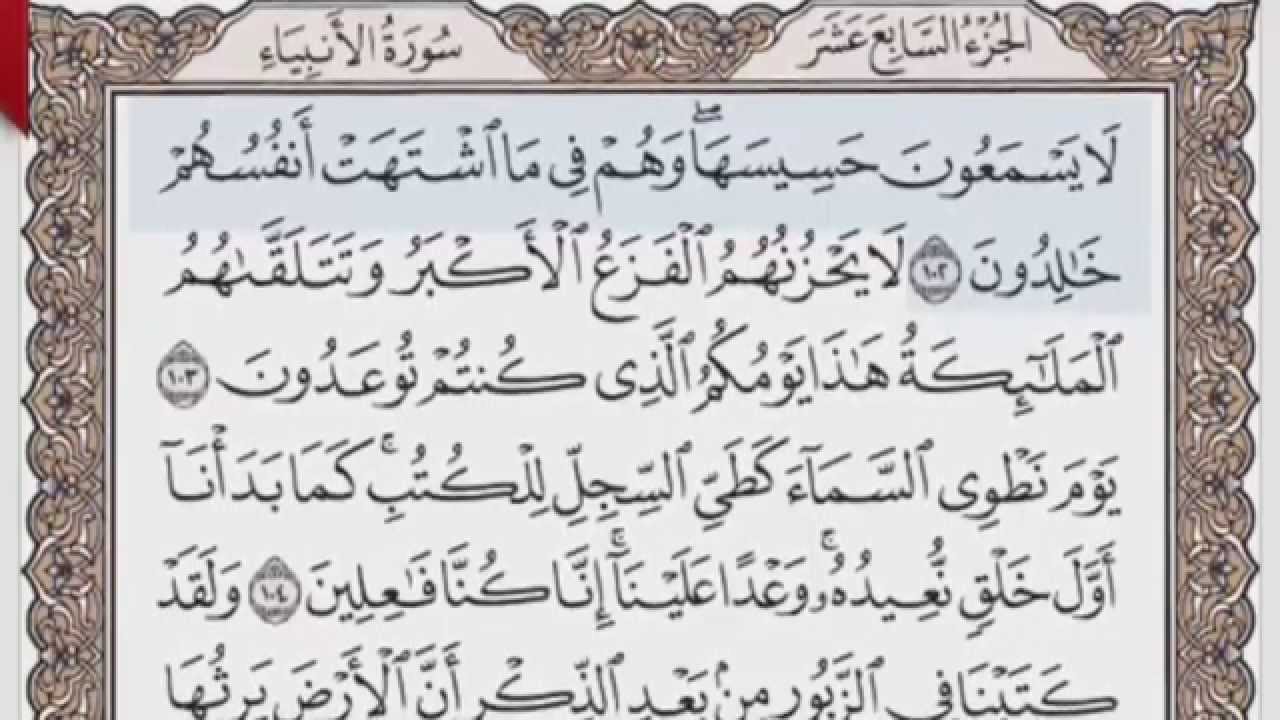 الجزء السابع عشر
سورة الأنبياء
لَا يَسْمَعُونَ حَسِيسَهَا ۖ وَهُمْ فِى مَا ٱشْتَهَتْ أَنفُسُهُمْ
خَٰلِدُونَ ١٠٢ لَا يَحْزُنُهُمُ ٱلْفَزَعُ ٱلْأَكْبَرُ وَتَتَلَقَّىٰهُمُ
ٱلْمَلَٰٓئِكَةُ هَٰذَا يَوْمُكُمُ ٱلَّذِى كُنتُمْ تُوعَدُونَ ١٠٣
يَوْمَ نَطْوِى ٱلسَّمَآءَ كَطَىِّ ٱلسِّجِلِّ لِلْكُتُبِ ۚ كَمَا بَدَأْنَآ
أَوَّلَ خَلْقٍ نُّعِيدُهُۥ ۚ وَعْدًا عَلَيْنَآ ۚ إِنَّا كُنَّا فَٰعِلِينَ ١٠٤ وَلَقَدْ
كَتَبْنَا فِى ٱلزَّبُورِ مِنۢ بَعْدِ ٱلذِّكْرِ أَنَّ ٱلْأَرْضَ يَرِثُهَا